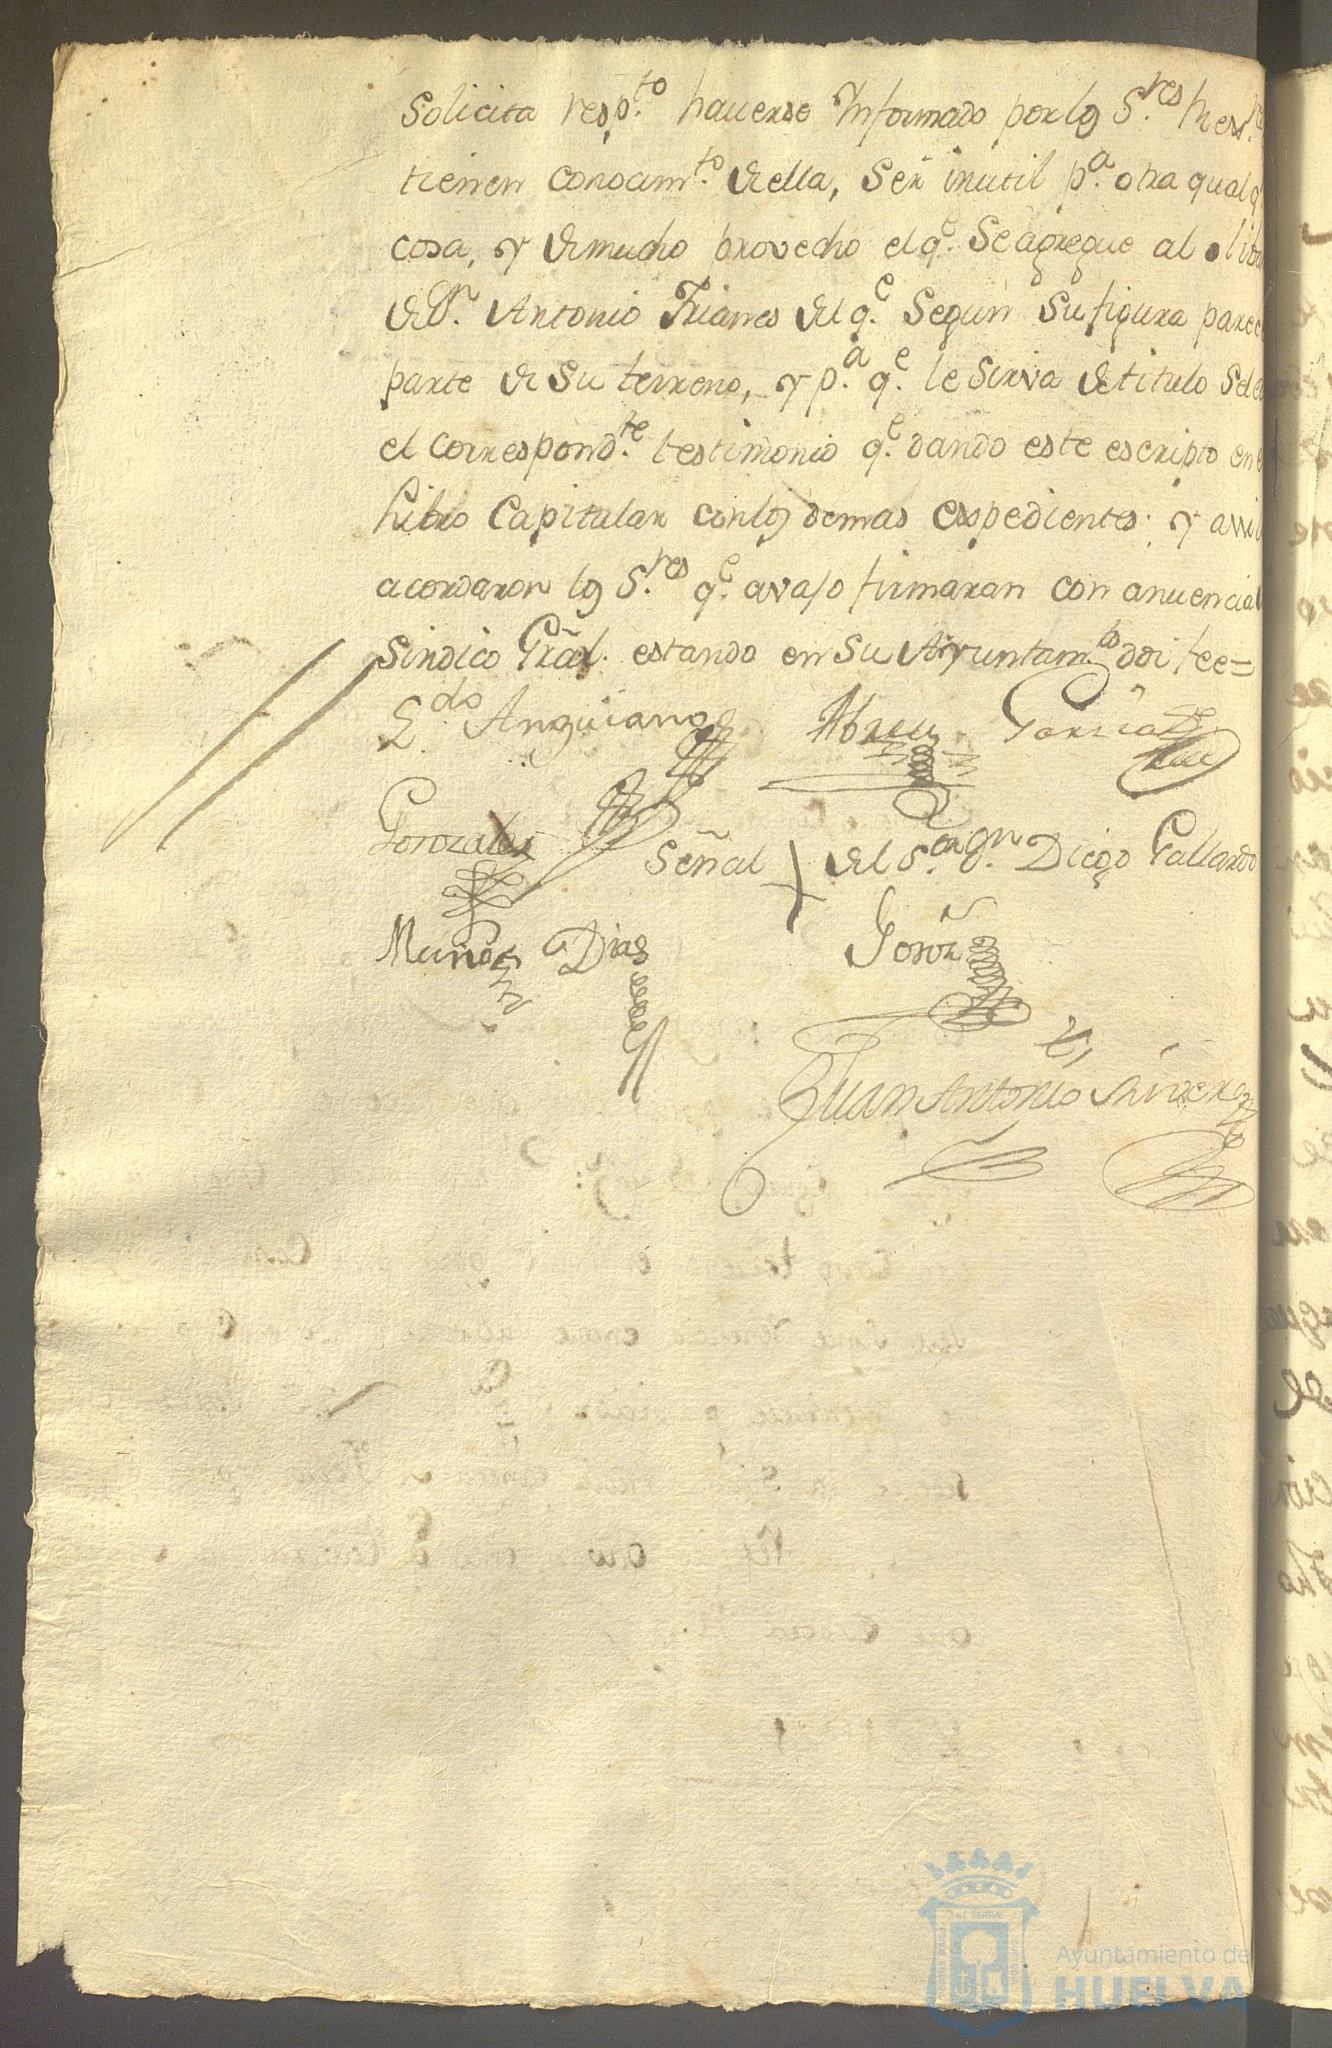 Solicita resp.to hauerse Informado por los S.res
tienen conocim.to de ella, Ser inutil p.a otra qualq
cosa, y de mucho provecho el q.e Se agregue al oliba
de D.n Antonio Trianes del q.e Segun Su figura parec
parte de Su terreno, y p.a q.e le Sirva de titulo Sele
el correspond.te testimonio q.e dando este escripto en
Libro Capitular con los demas espedientes; y assi
acordaron los S.res q.e avajo firmaran con anuencia
Sindico Gral. estando en Su Ayuntam.to doi fee=
L.do Anguiano Abreu Garcia
Gonzales Señal del S.or D.n Diego Gallardo
Muños Dias Gonz
Juan Antonio
Ayuntamiento de
HUELVA